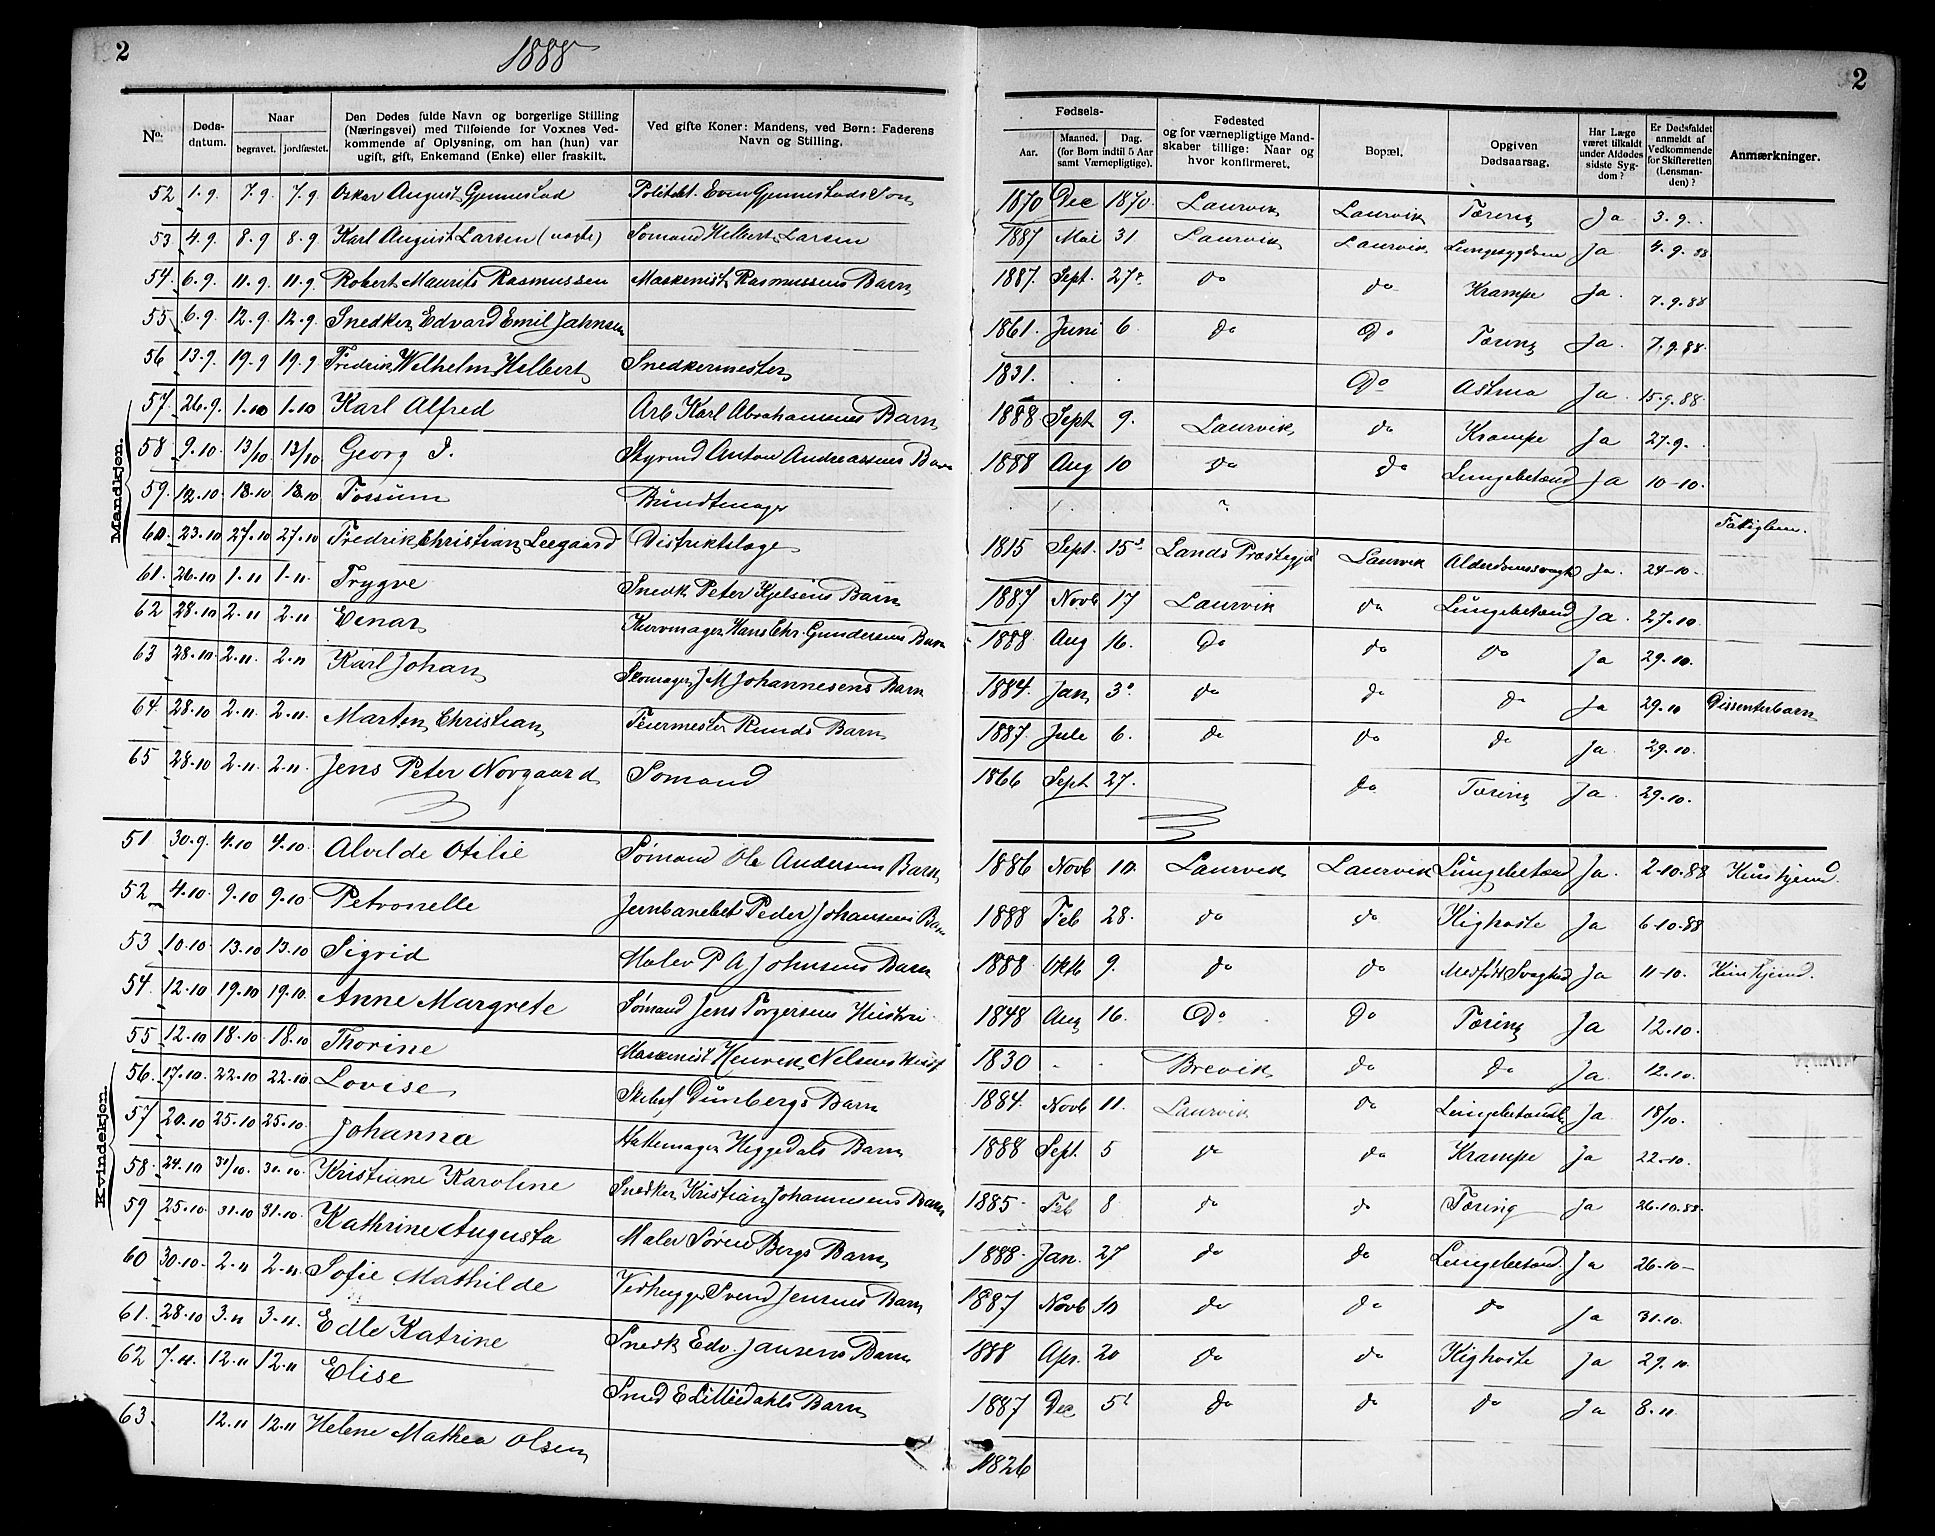 2 1888 2
No. Døds-datum. Naar begravet. jordfæstet. Den Dødes fulde Navn og borgerlige Stilling (Næringsvei) med Tilføiende for Voxnes Vedkommende af Oplysning, om han (hun) var ugift, gift, Enkemand (Enke) eller fraskilt. Ved gifte Koner: Mandens, ved Børn: Faderens Navn og Stilling. Fødsels- Aar. Maaned, Dag. (for Børn indtil 5 Aar samt Værnepligtige). Fødested og for værnepligtige Mandskaber tillige: Naar og hvor konfirmeret. Bopæl. Opgiven Dødsaarsag. Har Læge været tilkaldt under Afdødes sidste Sygdom? Er Dødsfaldet anmeldt af Vedkommende for Skifteretten (Lensmanden)? Anmærkninger.
Mandkjøn.
52 1.9. 7.9. 7.9 Oskar August Gjennestad Politibt. Even Gjennestads Søn 1870 Dec 1870. Laurvik Laurvik Tæring Ja. 3.9.
53 4.9. 8.9 8.9 Karl August Larsen (uægte) Sømand Helbert Larsen 1887 Mai 31 Laurvik Laurvik Lungesygdom Ja 4.9.88
54. 6.9. 11.9. 11.9. Robert Maurits Rasmussen Maskenist Rasmussens Barn 1887. Sept. 27. do do Krampe Ja. 7.9.88
55 6.9. 12.9. 12.9. Snedker Edvard Emil Jahnsen 1861. Juni 6. do Do Tæring Ja. 7.9.88.
56 13.9. 19.9 19.9 Fredrik Wilhelm Helbert Snedkermester 1831. . . Do Astma Ja. 15.9.88.
57. 26.9. 1.10 1.10 Karl Alfred Arb Karl Abrahamsens Barn 1888 Sept 9. Laurvik do Krampe Ja 27.9.
58 9.10 13/10 13/10 Georg I. Styrmd Anton Andreassens Barn 1888 Aug 10 do do Lungebetænd Ja 10-10.
59. 12.10 18.10 18.10 Fossum Bundtmager Fattiglem.
60. 23.10 27/10 27.10 Fredrik Christian Leegaard Distriktslæge 1815 Sept. 15. Lands Præstegjd Laurvik Alderdomssvagh Ja. 24-10.
61. 26.10 1.11 1.11. Trygve Snedk Peter Kjelsens Barn 1887 Novb 17 Laurvik do Lungebetænd Ja. 27.10.
62 28.10 2.11 2.11 Einar Kurvmager Hans Chr. Gundersens Barn 1888. Aug 16. Do do do Ja 29.10.
63 28.10. 2.11. 2.11 Karl Johan Skomager J M Johannesens Barn 1884. Jan 3. do do do Ja 29.10 Dissenterbarn
64. 28.10 2.11. 2.11. Marten Christian Feiermester Runds Barn 1887. Jule 6. do do do Ja. 29.10.
65 28.10 2.11. 2.11. Jens Peter Norgaard Sømand 1866 Sept 27. do Tæring Ja. 29.10.
Kvindekjøn.
51 30.9. 4.10 4.10. Alvilde Otilie Sømand Ole Andersens Barn 1886 Novb 10. Laurvik Laurvik Lungebetænd Ja. 2.10.88
52 4.10. 9.10 9.10. Petronelle Jernbanebet Peder Johansens Barn 1888 Feb 28. do do Kighoste Ja 6-10-88
53 10.10. 13.10 13.10 Sigrid Maler P A Johnsens Barn 1888 Okt 9. do do Medfødt Svaghed Ja 11-10.
54. 12.10 19.10 19.10. Anne Margrete Sømand Jens Torgersens Hustru 1848 Aug 16. Do do Tæring Ja 12.10.
55 12.10 18.10. 18.10 Thorine Maskenist Henrik Nelsens Hust 1830 . . Brevik do do Ja. 12.10.
56. 17.10. 22.10 22.10. Lovise Skibsf Dünbergs Barn 1884. Novb 11. Laurvik do Lungebetænd Ja. 18/10.
57 20.10 25.10 25.10. Johanna Hattemager Heggedals Barn 1888 Sept. 5 do do Krampe Ja 22-10.
58. 24.10 31/10. 31.10. Kristiane Karoline Snedker Kristian Johannesens Barn 1885. Feb 8 do do Tæring Ja 26.10.88.
59 25.10 31.10 31.10. Kathrine Augusta Maler Søren Bergs Barn 1888. Jan. 27 do do Lungebetænd. Ja 26.10-
60 30.10. 2.11 2.11 Sofie Mathilde Vedhugger Svend Jensens Barn 1887 Novb 10 do do do Ja 31.10.
61. 28.10 3.11 3.11. Edle Katrine Snedk Edv. Jansens Barn 1888 Apr. 20 do do Kighoste Ja 29.10.
62 7.11. 12.11 12.11 Elise Smed E Lilliedahls Barn 1887 Dec 5 do do do Ja 8.11.
63. 12.11 12.11 Helene Mathea Olsen 1826